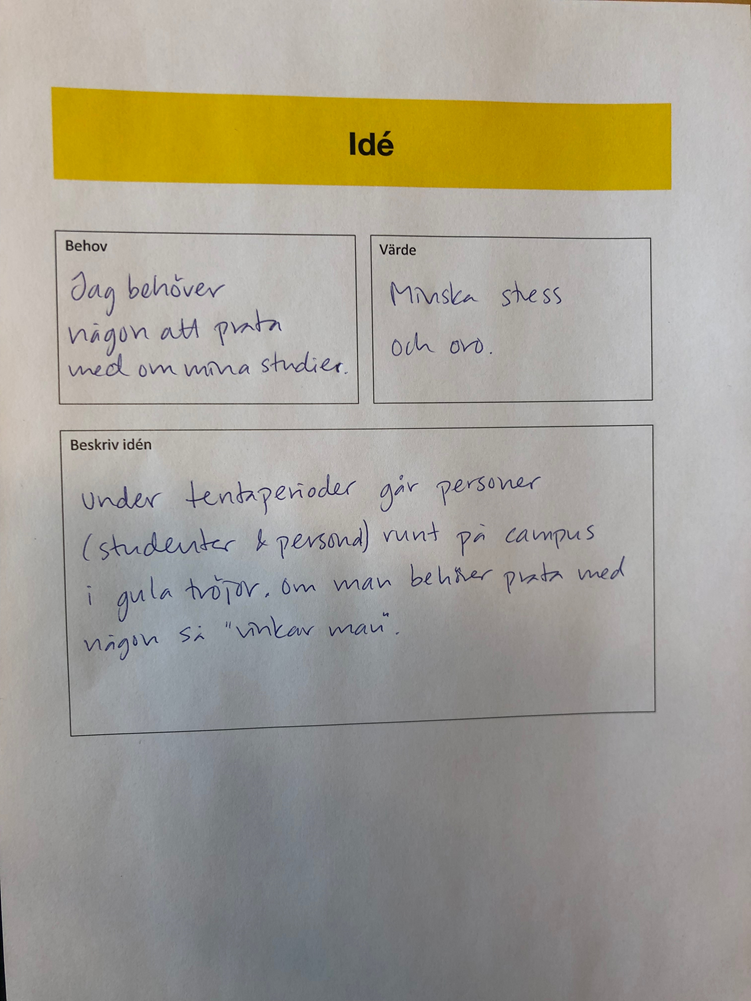 Idé
Behov
Jag behöver
någon att prata
med om mina studier.
Värde
Minska stress
och oro.
Beskriv idén
Under tentaperioder går personer
(studenter & personal) runt på campus
i gula tröjor. Om man behöver prata med
någon så "vinkar man".